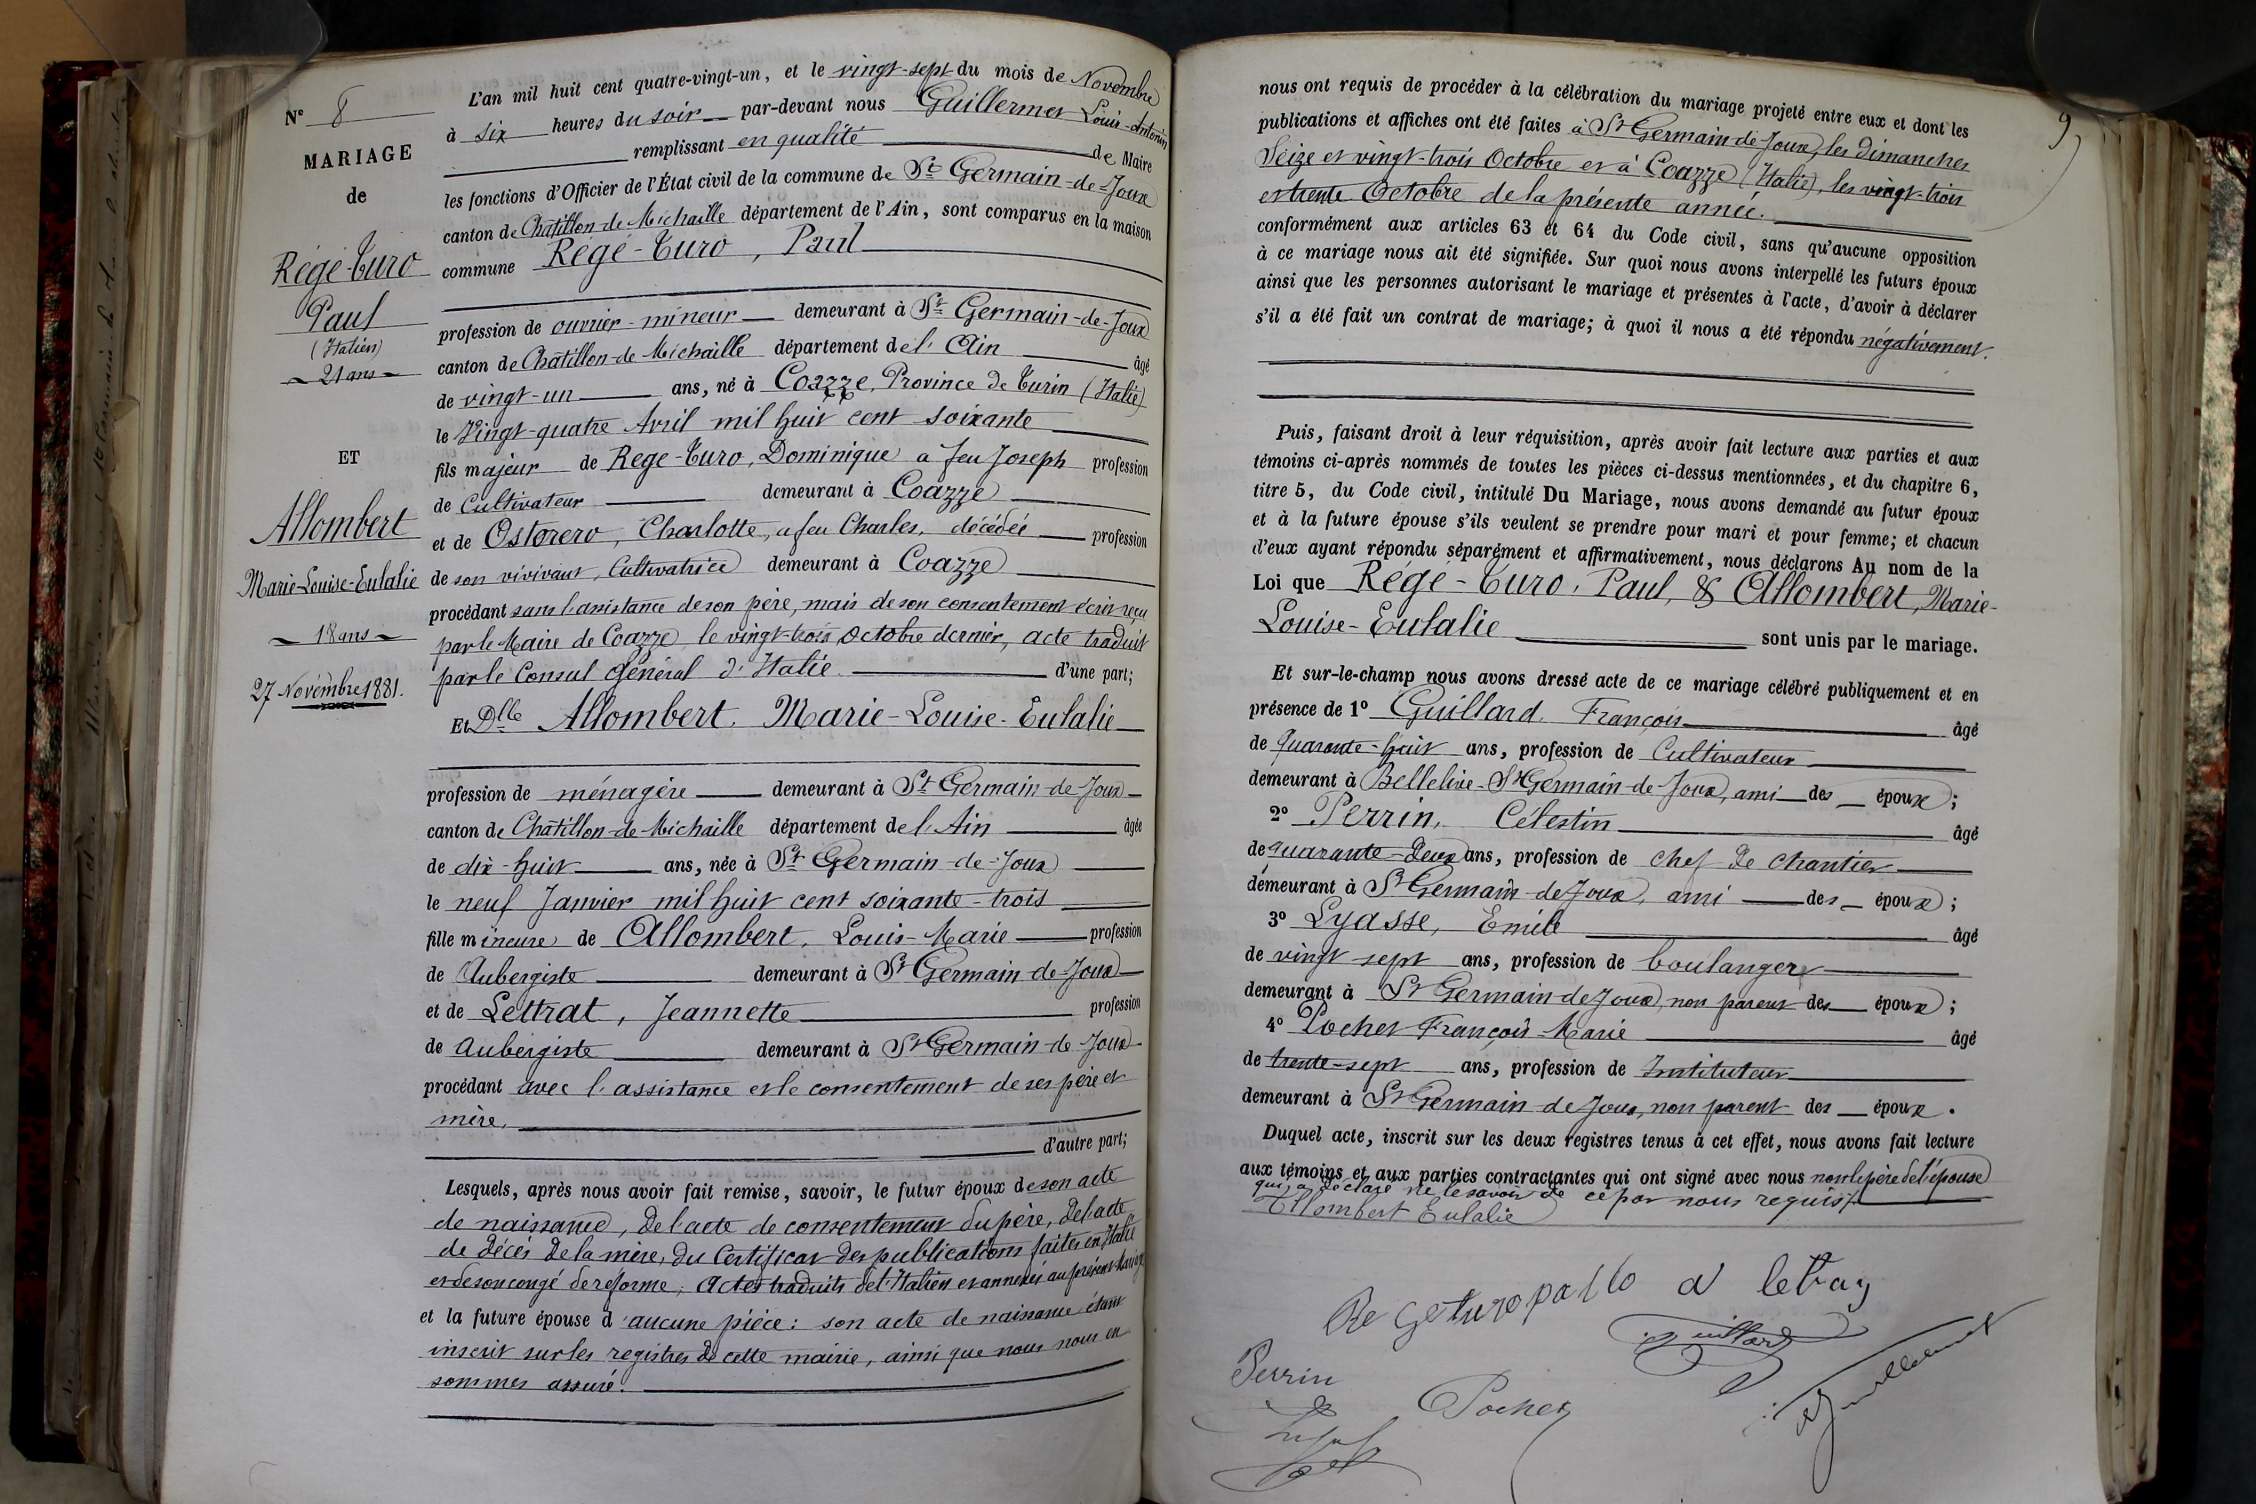 N° 8
MARIAGE
de
Régé-Turo
Paul
(Italien)
21 ans
ET
Allombert
Marie-Louise-Eulalie
18 ans
27 Novembre 1881.
L'an mil huit cent quatre-vingt-un, et le vingt-sept du mois de Novembre
à six heures du soir par-devant nous Guillermet Louis-Antonin
remplissant en qualité de Maire
les fonctions d'Officier de l'État civil de la commune de St Germain-de-Joux
canton de Chatillon-de-Michaille département de l'Ain, sont comparus en la maison
commune Régé-Turo, Paul
profession de ouvrier-mineur demeurant à St Germain-de-Joux
canton de Chatillon-de Michaille département de l'Ain âgé
de vingt-un ans, né à Coazze, Province de Turin (Italie)
le Vingt-quatre Avril mil huit cent soixante
fils majeur de Rege-Turo, Dominique a feu Joseph profession
de Cultivateur demeurant à Coazze
et de Ostorero, Charlotte, a feu Charles, décédée profession
de son vivivant, Cultivatrice demeurant à Coazze
procédant sans l'assistance de son père, mais de son consentement écrit reçu
par le Maire de Coazze, le vingt-trois Octobre dernier, acte traduit
par le Consul Général d'Italie d'une part;
Et Dlle Allombert, Marie-Louise-Eulalie
profession de ménagère demeurant à St Germain-de-Joux
canton de Chatillon-de-Michaille département de l'Ain âgée
de dix-huit ans, née à St Germain-de-Joux
le neuf Janvier mil huit cent soixante-trois
fille mineure de Allombert, Louis-Marie profession
de Aubergiste demeurant à St Germain-de-Joux
et de Lettrat, Jeannette profession
de aubergiste demeurant à St Germain-de Joux
procédant avec l'assistance et le consentement de ses père et
mère,
d'autre part;
Lesquels, après nous avoir fait remise, savoir, le futur époux de son acte
de naissance, de l'acte de consentement du père, de l'acte
de décès de la mère, du Certificat des publications faites en Italie
et de son congé de réforme; actes traduits de l'Italien et annexés au présent
et la future épouse d'aucune pièce: son acte de naissance étant
inscrit sur les registres de cette mairie, ainsi que nous nous en
sommes assuré.
9
nous ont requis de procéder à la célébration du mariage projeté entre eux et dont les
publications et affiches ont été faites à St Germain-de-Joux, les dimanches
Seize et vingt-trois Octobre et à Coazze (Italie), les vingt-trois
et trente Octobre de la présente année.
conformément aux articles 63 et 64 du Code civil, sans qu'aucune opposition
à ce mariage nous ait été signifiée. Sur quoi nous avons interpellé les futurs époux
ainsi que les personnes autorisant le mariage et présentes à l'acte, d'avoir à déclarer
s'il a été fait un contrat de mariage; à quoi il nous a été répondu négativement.
Puis, faisant droit à leur réquisition, après avoir fait lecture aux parties et aux
témoins ci-après nommés de toutes les pièces ci-dessus mentionnées, et du chapitre 6,
titre 5, du Code civil, intitulé Du Mariage, nous avons demandé au futur époux
et à la future épouse s'ils veulent se prendre pour mari et pour femme; et chacun
d'eux ayant répondu séparément et affirmativement, nous déclarons Au nom de la
Loi que Régé-Turo, Paul, & Allombert, Marie-
Louise-Eulalie sont unis par le mariage.
Et sur-le-champ nous avons dressé acte de ce mariage célébré publiquement et en
présence de 1° Guillard, François âgé
de quarante-huit ans, profession de Cultivateur
demeurant à St Germain-de-Joux, ami des époux;
2° Perrin, Célestin âgé
de quarante-deux ans, profession de chef de chantier
demeurant à St Germain-de Joux, ami des époux;
3° Lyasse, Emile âgé
de vingt sept ans, profession de boulanger
demeurant à St Germain-de Joux, non parent des époux;
4° Pochet François-Marie âgé
de trente-sept ans, profession de Instituteur
demeurant à St Germain-de Joux, non parent des époux.
Duquel acte, inscrit sur les deux registres tenus à cet effet, nous avons fait lecture
aux témoins et aux parties contractantes qui ont signé avec nous non le père de l'épouse
qui a déclaré ne le savoir de ce par nous requis
Allombert Eulalie
Regeturo paolo
Guillard
Perrin
Pochet